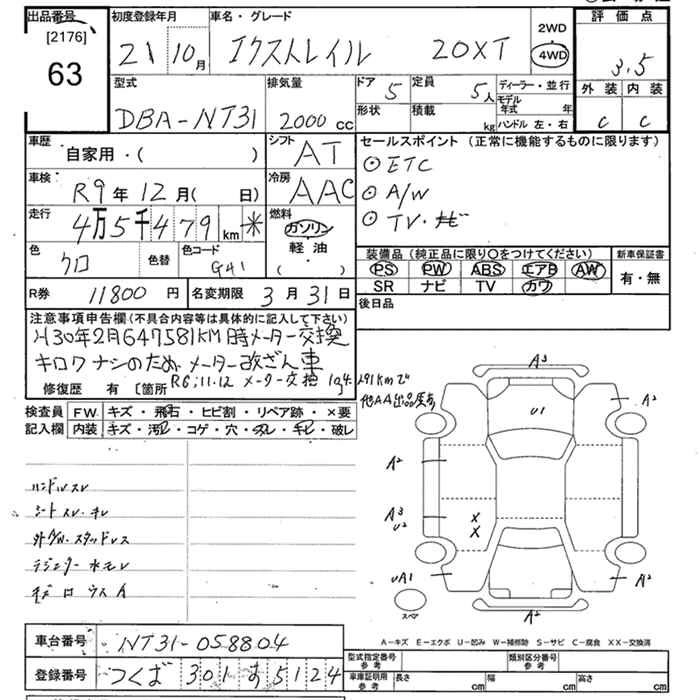 出品番号
[2176]
63
初度登録年月
21 10月
車名・グレード
エクストレイル 20XT
2WD
4WD
評価点
3.5
外装 内装
C C
型式
DBA-NT31
排気量
2000 cc
ドア 5
定員 5人
形状
積載 kg
ディーラー・並行
モデル年式 年
ハンドル 左・右
車歴
自家用・( )
シフト
AT
セールスポイント (正常に機能するものに限ります)
ETC
A/W
TV・ナビ
車検
R9年12月( 日)
冷房
AAC
走行
4万5千479km *
燃料
ガソリン
軽油
( ・ )
色
クロ
色替
色コード
G41
装備品(純正品に限り○をつけてください)
PS PW ABS エアB AW
SR ナビ TV カワ
新車保証書
有・無
R券 11800円
名変期限 3月31日
後日品
注意事項申告欄(不具合内容等は具体的に記入して下さい)
H30年2月647581KM時メーター交換
キロク ナシのため メーター改ざん車
R6.11.12 メーター交換 104,291kmで
他AA出品歴有
修復歴 有 [箇所
検査員記入欄
FW. キズ・飛石・ヒビ割・リペア跡・×要
内装 キズ・汚レ・コゲ・穴・スレ・キレ・破レ
ハンドルスレ
シートスレ・キレ
外AW・スタッドレス
ラジエター水モレ
A3
U1
A2
A2
A3
U2
X
X
UA1
A2
A2
スペア
A-キズ E-エクボ U-凹み W-補修跡 S-サビ C-腐食 XX-交換済
車台番号 NT31-058804
登録番号 つくば 301 す 5124
型式指定番号 参考
類別区分番号 参考
車庫証明用 参考
長さ cm
幅 cm
高さ cm